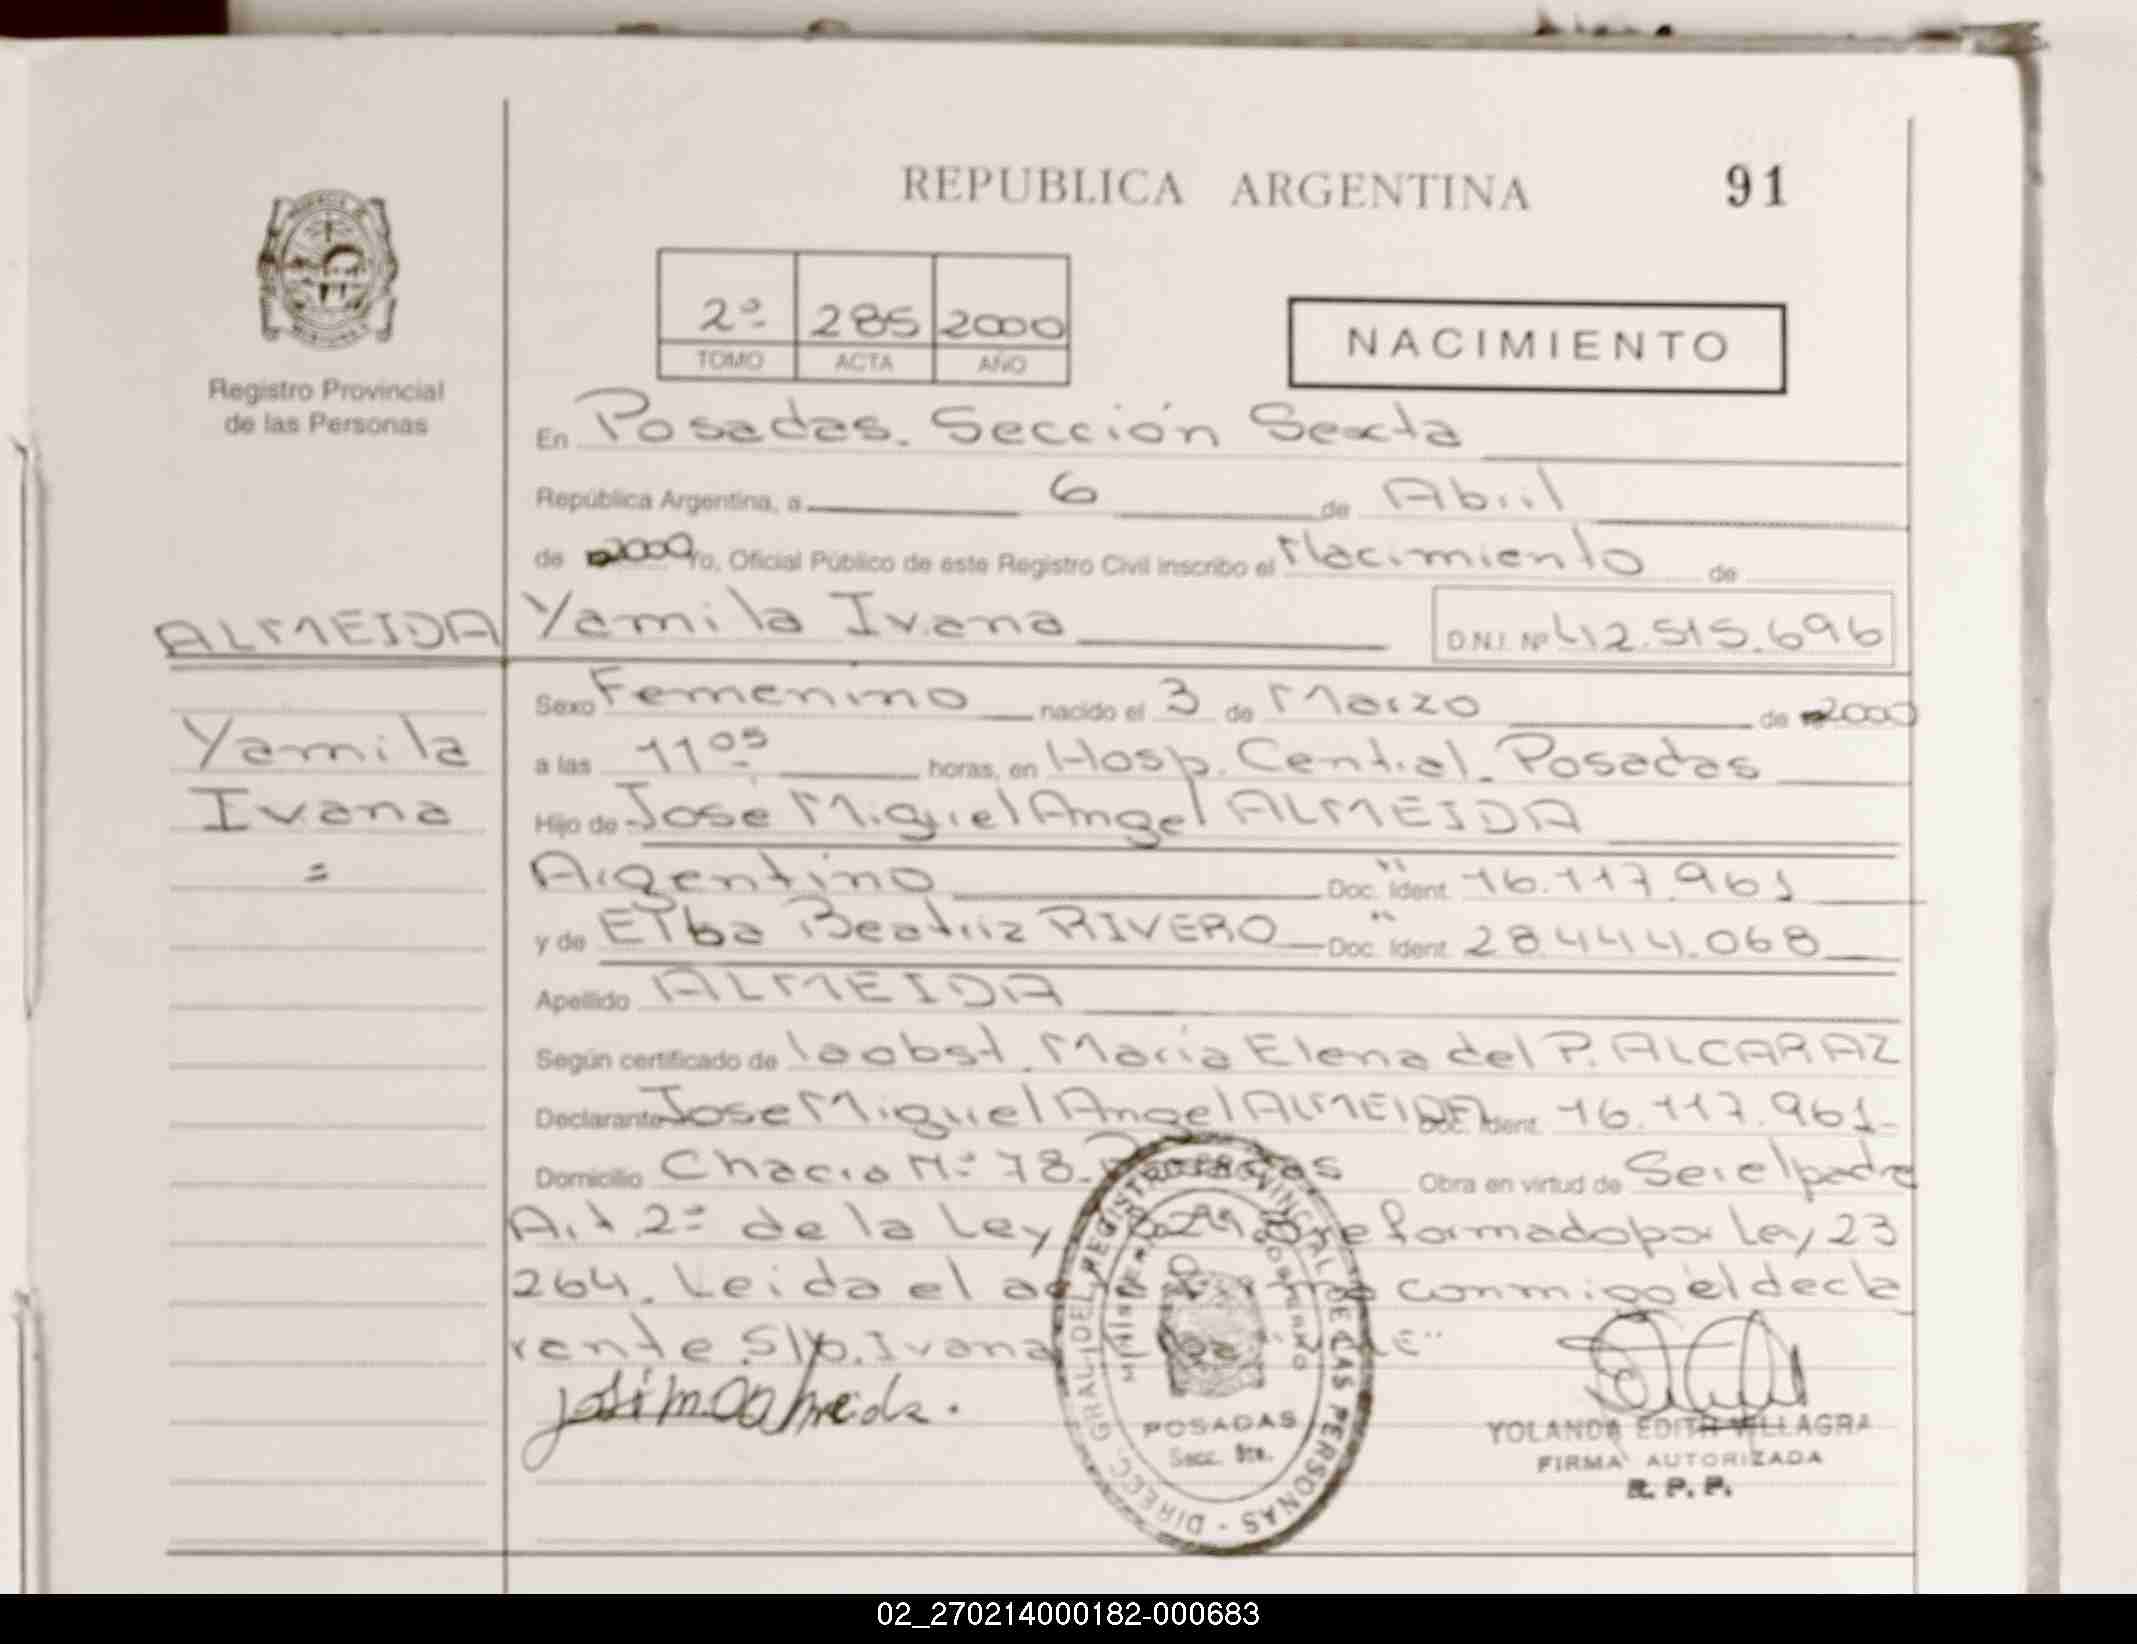 REPUBLICA ARGENTINA
91
2º 285 2000
TOMO ACTA AÑO
NACIMIENTO
Registro Provincial
de las Personas
En Posadas. Sección Sexta
República Argentina, a 6 de Abril
de 2000 Yo, Oficial Público de este Registro Civil inscribo el Nacimiento de
ALMEIDA Yamila Ivana D.N.I. Nº 42.515.696
Sexo Femenino nacido el 3 de Marzo de 2000
Yamila
a las 11 05 horas, en Hosp. Central. Posadas
Ivana
Hijo de Jose Miguel Angel ALMEIDA
=
Argentino Doc. Ident. 16.117.961
y de Elba Beatriz RIVERO Doc. Ident. 28.444.068
Apellido ALMEIDA
Según certificado de la obst. María Elena del P. ALCARAZ
Declarante Jose Miguel Angel ALMEIDA Doc. Ident. 16.117.961-
Domicilio Chacra Nº 78. Posadas Obra en virtud de Ser el padre
Art 2º de la Ley reformado por Ley 23
264. Leida el acta firma conmigo el decla
rante. S/r. Ivana "VALE"
DIREC. GRAL. DEL REGISTRO PROVINCIAL DE LAS PERSONAS
MINISTERIO GOBIERNO
POSADAS
Secc. 6ta.
YOLANDA EDITH VILLAGRA
FIRMA AUTORIZADA
R. P. P.
02_270214000182-000683